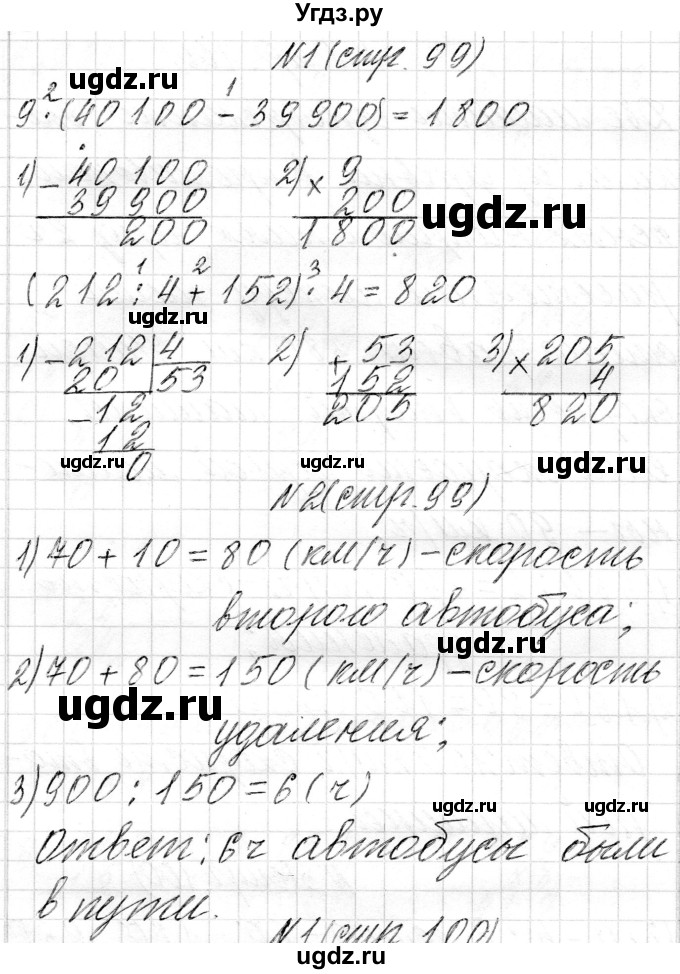 Угдз.ру
N1 (стр. 99)
ugdz.ru
2 1
9 · (40100 - 39900) = 1800
1) - 40 100 2) x 9
39 900 200
ugdz.ru
200 1800
1 2 3
(212 : 4 + 152) · 4 = 820
ugdz.ru
1) - 212 | 4 2) + 53 3) x 205
20 53 152 4
- 12 205 820
12
ugdz.ru ugdz.ru ugdz.ru
0
N2 (стр. 99)
1) 70 + 10 = 80 (км/ч) - скорость
второго автобуса;
ugdz.ru
2) 70 + 80 = 150 (км/ч) - скорость
ugdz.ru
удаления;
3) 900 : 150 = 6 (ч)
ugdz.ru ugdz.ru
Ответ: 6 ч автобусы были
в пути.
N1 (стр. 100)